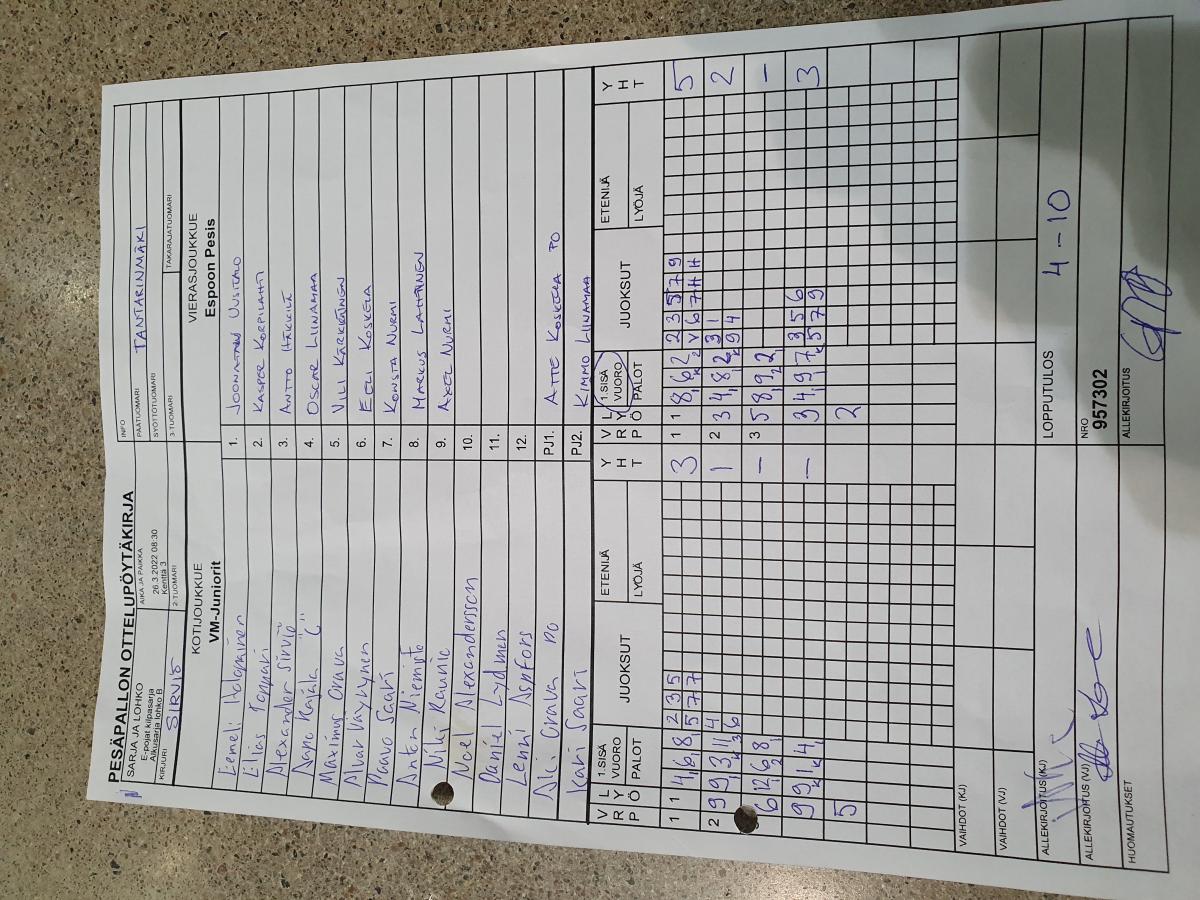 PESÄPALLON OTTELUPÖYTÄKIRJA
SARJA JA LOHKO
E-pojat kilpasarja
Alkusarja lohko B
AIKA JA PAIKKA
26.3.2022 08:30
Kenttä 3
INFO
PÄÄTUOMARI
TANTARINMÄKI
SYÖTTÖTUOMARI
KIRJURI SIRVIÖ
2-TUOMARI
3-TUOMARI
TAKARAJATUOMARI
KOTIJOUKKUE
VM-Juniorit
VIERASJOUKKUE
Espoon Pesis
Eemeli
1. JOONATAN UUSITALO
Elias
2. KASPER KORPILAHTI
Alexander Sirviö
3. ANTTO HÄKKILÄ
Aapo Rajala "C"
4. OSCAR LIINAMAA
Maximus Orava
5. VILI KÄRKKÄINEN
Alvar Väyrynen
6. EELI KOSKELA
Paavo Saari
7. KONSTA NURMI
Anton Niemistö
8. MARKUS LAHTINEN
Niki Raunio
9. AXEL NURMI
Noel Alexandersson
10.
Daniel Lydman
11.
Lenni Aspfors
12.
Aki Orava PO
PJ1. ATTE KOSKELA PO
Kari Saari
PJ2. KIMMO LIINAMAA
V R P L Y Ö 1.SISÄ VUORO PALOT JUOKSUT ETENIJÄ LYÖJÄ Y H T
V R P L Y Ö 1.SISÄ VUORO PALOT JUOKSUT ETENIJÄ LYÖJÄ Y H T
1 1 4 6 8 2 3 5 3
5 7 7
1 1 8 6 2 2 3 5 7 9 5
V 6 7 H H
2 9 9 3 11 4 1
6
2 3 4 8 2 3 1 2
9 4
6 12 6 8 –
3 5 8 9 2 –
9 9 1 4 –
3 4 9 7 3 5 6 3
5 7 9
5
2
VAIHDOT (KJ)
VAIHDOT (VJ)
ALLEKIRJOITUS (KJ)
LOPPUTULOS 4 – 10
ALLEKIRJOITUS (VJ)
NRO
957302
HUOMAUTUKSET
ALLEKIRJOITUS